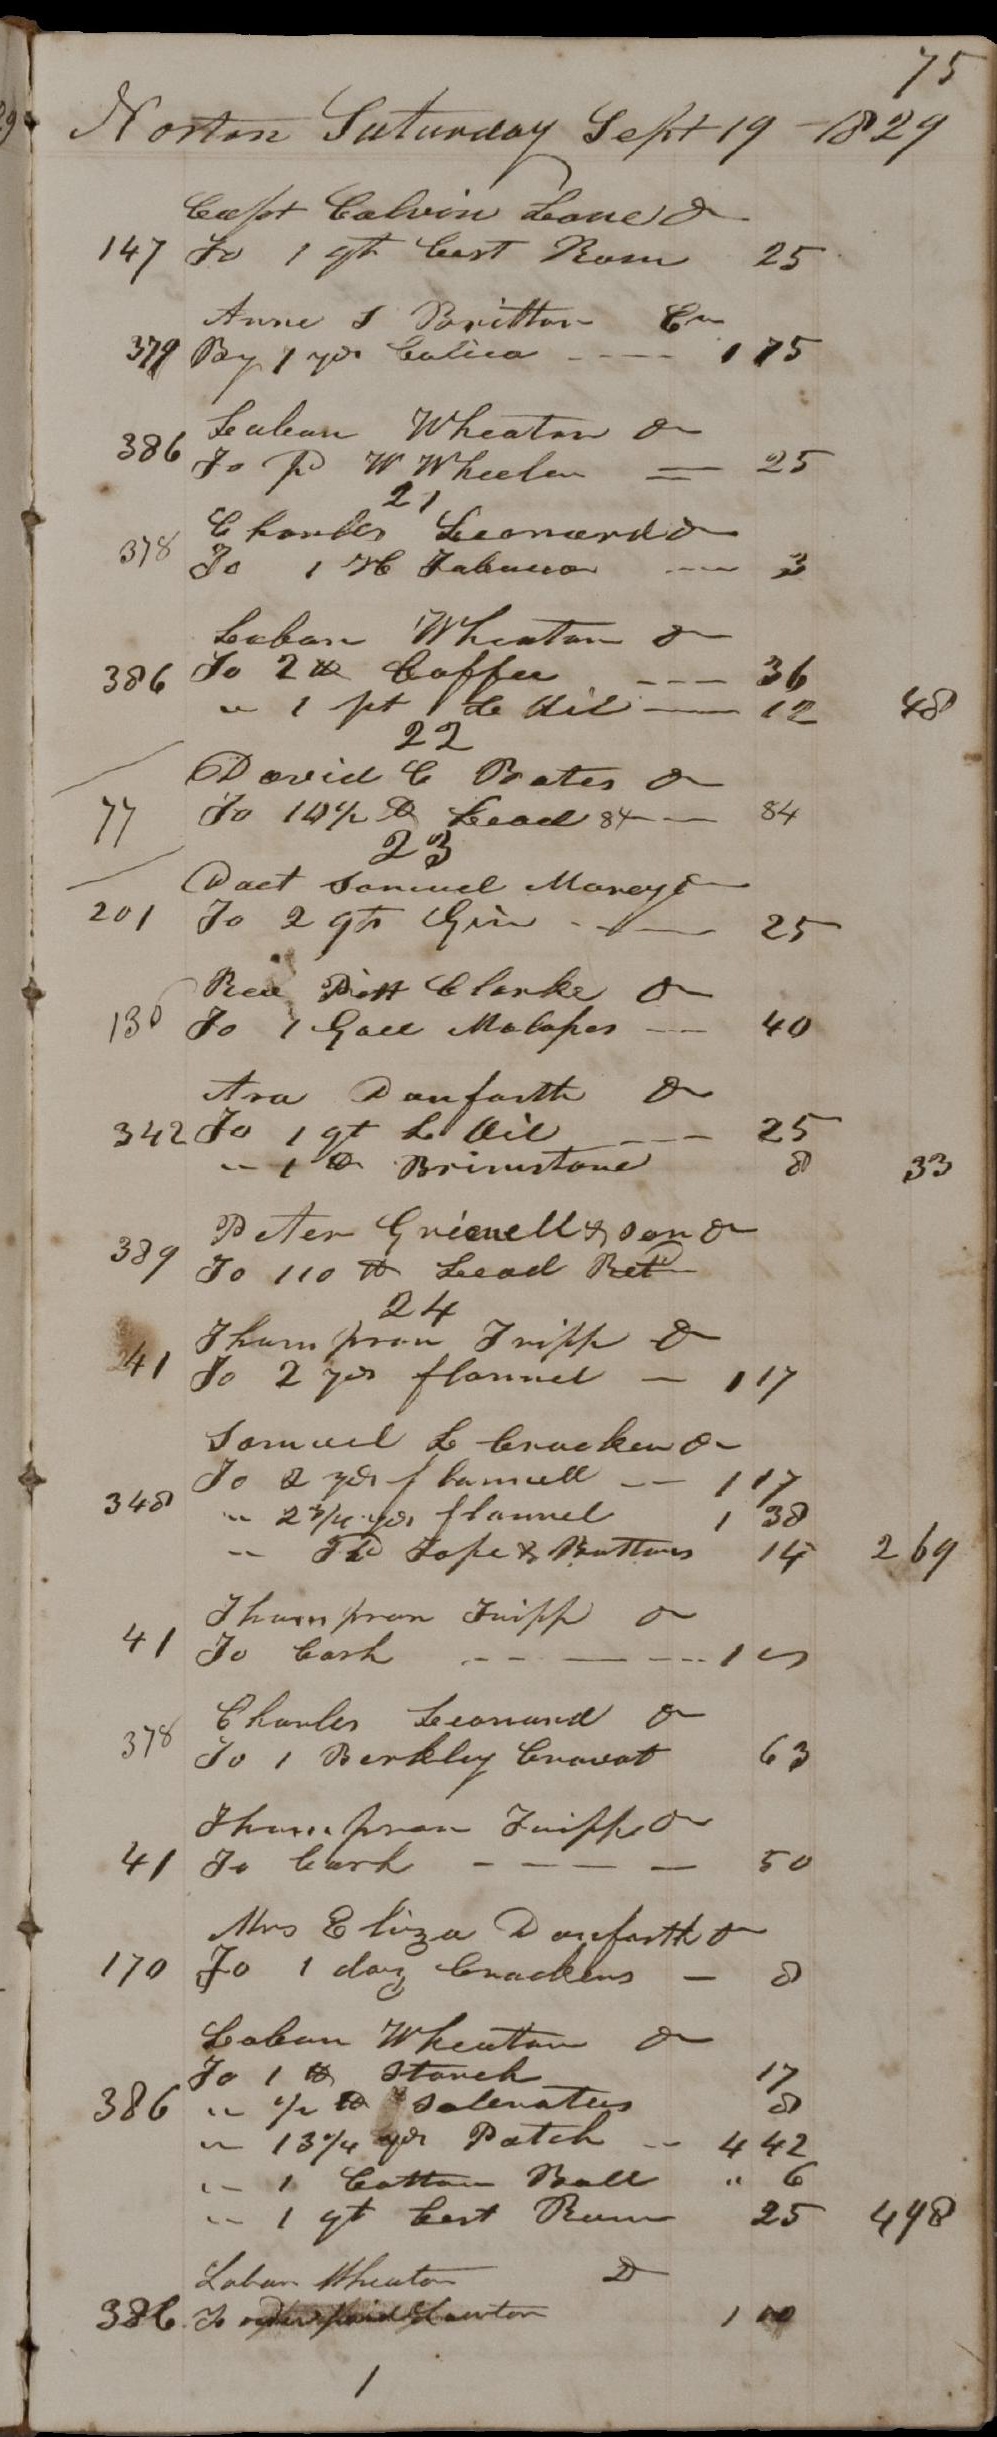 75
Norton Saturday Sept 19 - 1829
Capt Calvin Lane Dr
147 To 1 qt best Rum 25
Anne S Britton Cr
379 By 7 yds Calico 1 75
Laban Wheaton Dr
386 To pd W Wheeler 25
21
Charles Leonard Dr
378 To 1 H Tabacco 3
Laban Wheaton Dr
386 To 2 lb Coffee 36
" 1 pt L Oil 12 48
22
David C Bates Dr
77 To 10 1/2 lb Lead 84 84
23
Doct Samuel Morey Dr
201 To 2 qts Gin 25
Rev Pitt Clarke Dr
130 To 1 Gall Molases 40
Asa Danforth Dr
342 To 1 qt L Oil 25
" 1 lb Brimstone 8 33
Peter Grinnell & Son Dr
389 To 110 lb Lead Retd
24
Thompson Tripp Dr
41 To 2 yds flannel 1 17
Samuel L Crocker Dr
348 To 2 yds flannell 1 17
" 2 3/4 yds flannel 1 38
" Tape & Buttons 14 2 69
Thompson Tripp Dr
41 To Cash 1 00
Charles Leonard Dr
378 To 1 Berkley Cravat 63
Thompson Tripp Dr
41 To Cash 50
Mrs Eliza Danforth Dr
170 To 1 doz Crackers 8
Laban Wheaton Dr
To 1 lb Starch 17
386 " 1/2 lb Saleratus 8
" 13 3/4 yds Patch 4 42
" 1 Cotton Ball " 6
" 1 qt best Rum 25 4 98
Laban Wheaton D
386 To paid Lawton 1 00
1